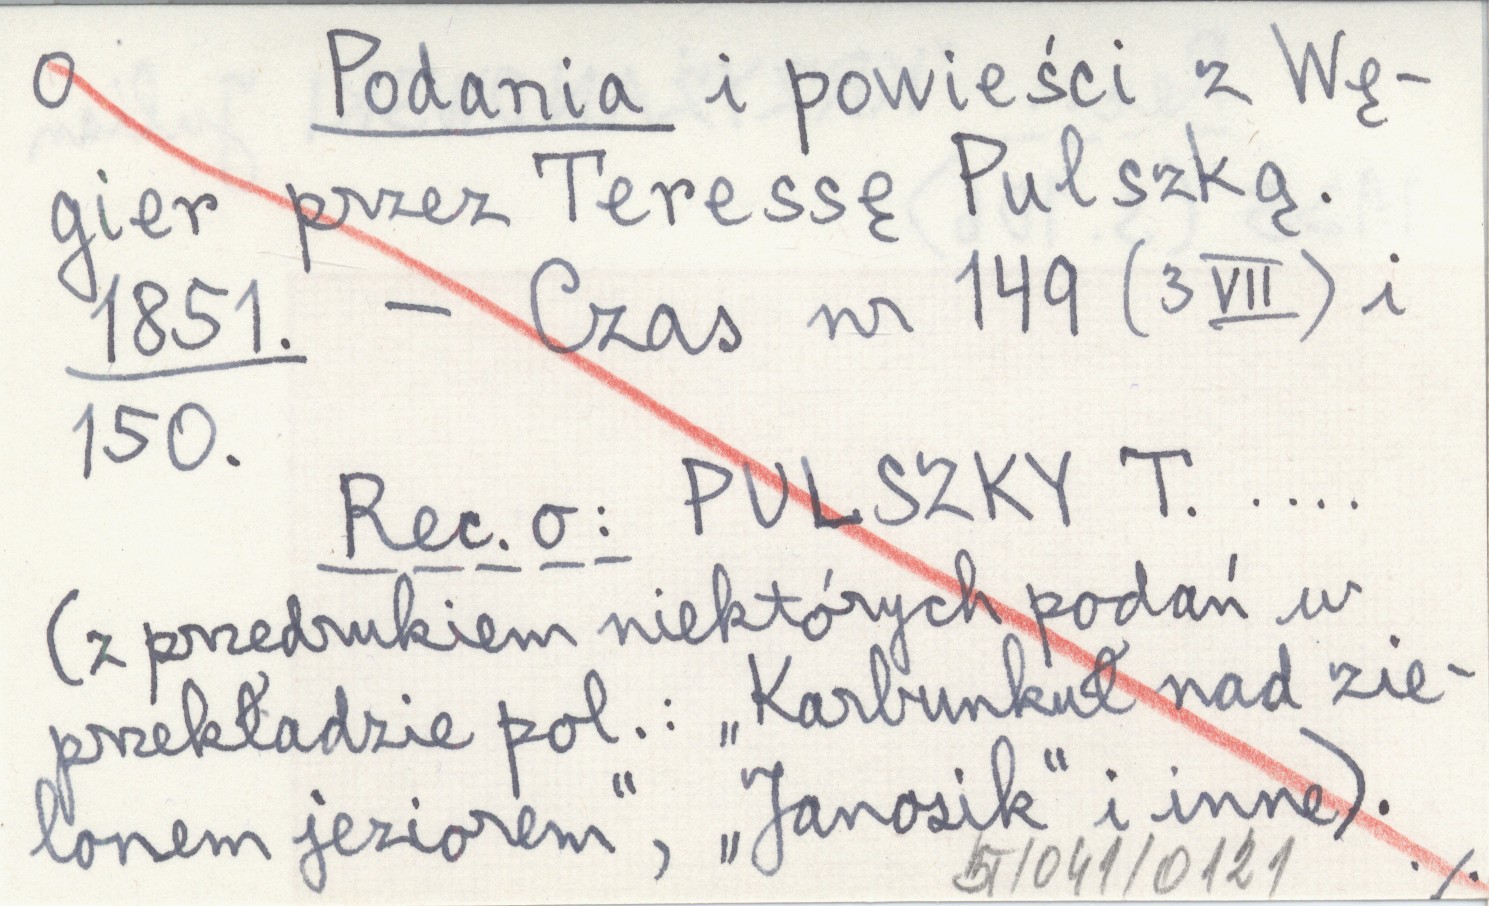 O Podania i powieści z Wę-
gier przez Teressę Pulszką.
1851. – Czas nr 149 (3 VII) i
150.
Rec. o: PULSZKY T. ....
(z przedrukiem niektórych podań w
przekładzie pol.: „Karbunkuł nad zie-
lonem jeziorem", „Janosik" i inne).
/041/0121 ./.